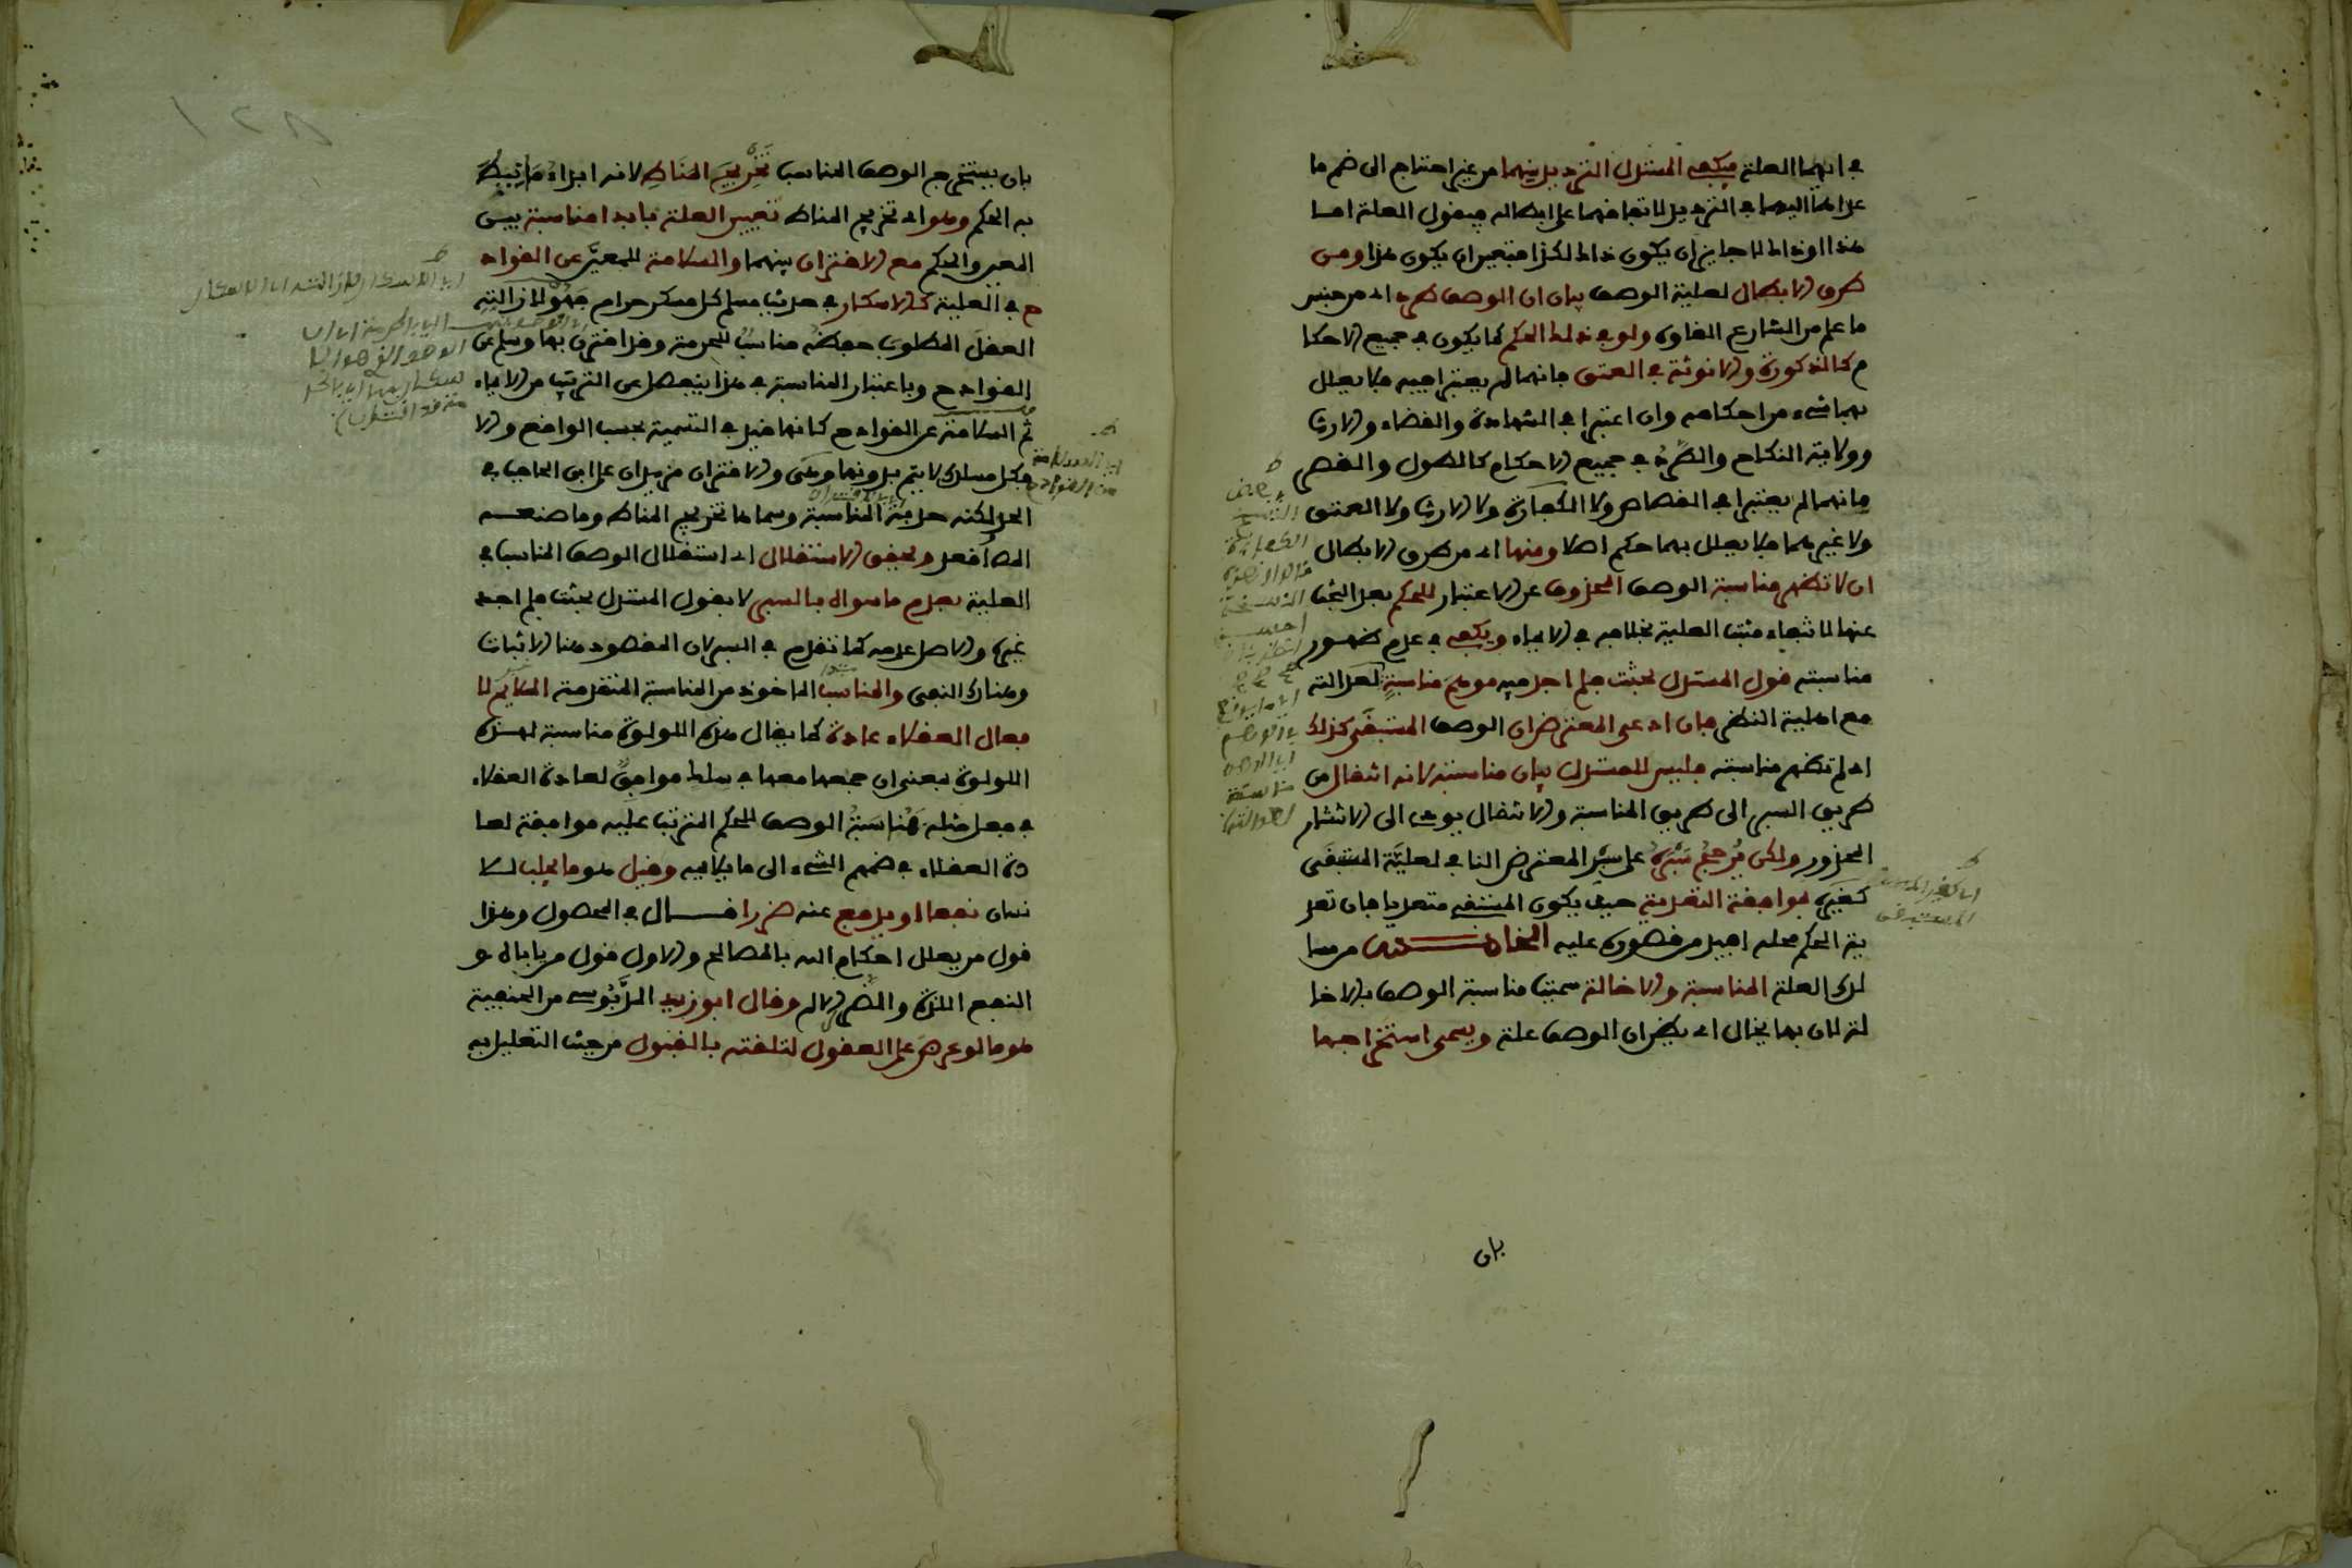 في ايهما العلة فيكفي المستدل الترديد بينهما من غير احتياج الى ضم ما
عداهما اليهما في الترديد لاتفاقهما على ابطاله فيقول العلة اما
هذا او ذاك لا جايز ان يكون ذاك لكذا فتعين ان يكون هذا ومن
طرق الابطال لعلية الوصف بيان ان الوصف طرد اي من جنس
ما علم من الشارع الغاوه ولو في ذلك الحكم كما يكون في جميع الاحكا
م كالذكورة والانوثة في العتق فانهما لم يعتبرا فيه فلا يعلل
بهما شيء من احكامه وان اعتبرا في الشهادة والقضاء والارث
وولاية النكاح والطرد في جميع الاحكام كالطول والقصر
فانهما لم يعتبرا في القصاص ولا الكفارة ولا الارث ولا العتق
ولا غيرهما فلا يعلل بهما حكم اصلا ومنها اي من طرق الابطال
ان لا تظهر مناسبة الوصف المحذوف عن الاعتبار للحكم بعد البحث
عنها لانتفاء مثبت العلية بخلافه في الايماء ويكفي في عدم ظهور
مناسبته قول المستدل بحثت فلم اجد فيه موهم مناسبة لعدالته
مع اهلية النظر فان ادعى المعترض ان الوصف المستبقى كذلك
اي لم تظهر مناسبته فليس للمستدل بيان مناسبته لانه انتقال من
طريق السبر الى طريق المناسبة والانتقال يودي الى الانتشار
المحذور ولكن يرجح سبره على سبر المعترض النافي لعلية المستبقى
كغيره بموافقة التعدية حيث يكون المستبقى متعديا فان تعد
ية الحكم محله افيد من قصوره عليه الخامس من مسا
لك العلة المناسبة والاخالة سميت مناسبة الوصف بالاخا
لة لان بها يخال اي يظن ان الوصف علة ويسمى استخراجها
بان
بان يستخرج الوصف المناسب تخريج المناط لانه ابداء ما نيط
به الحكم وهو اي تخريج المناط تعيين العلة بابدا مناسبة بين
المعين والحكم مع الاقتران بينهما والسلامة للمعين عن القواد
ح في العلية كالاسكار في حديث مسلم كل مسكر حرام فهو لازالته
العقل المطلوب حفظه مناسب للحرمة وقد اقترن بها وسلم عن
القوادح وباعتبار المناسبة في هذا ينفصل عن الترتيب من الايماء
ثم السلامة عن القوادح كانها قيد في التسمية بحسب الواقع والا
فكل مسلك لا يتم بدونها وهي والاقتران مزيدان على ابن الحاجب في
الحد لكنه حد به المناسبة وسماها تخريج المناط وما صنعه
المص اقعد وتحقق الاستقلال اي استقلال الوصف المناسب في
العلية بعدم ما سواه بالسبر لا بقول المستدل بحثت فلم اجد
غيره والاصل عدمه كما تقدم في السبر لان المقصود هنا الاثبات
وهناك النفي والمناسب الماخوذ من المناسبة المتقدمة الملايم لا
فعال العقلاء عادة كما يقال هذه اللولوة مناسبة لهذه
اللولوة بمعنى ان جمعها معها في سلك موافق لعادة العقلاء
في فعل مثله فمناسبة الوصف للحكم المترتب عليه موافقة لعا
دة العقلاء في ضمهم الشيء الى ما يلايمه وقيل هو ما يجلب للا
نسان نفعا او يدفع عنه ضررا قال في المحصول وهذا
قول من يعلل احكام الله بالمصالح والاول قول من ياباه و
النفع اللذة والضرر الالم وقال ابو زيد الدبوسي من الحنفية
هو ما لو عرض على العقول لتلقته بالقبول من حيث التعليل به